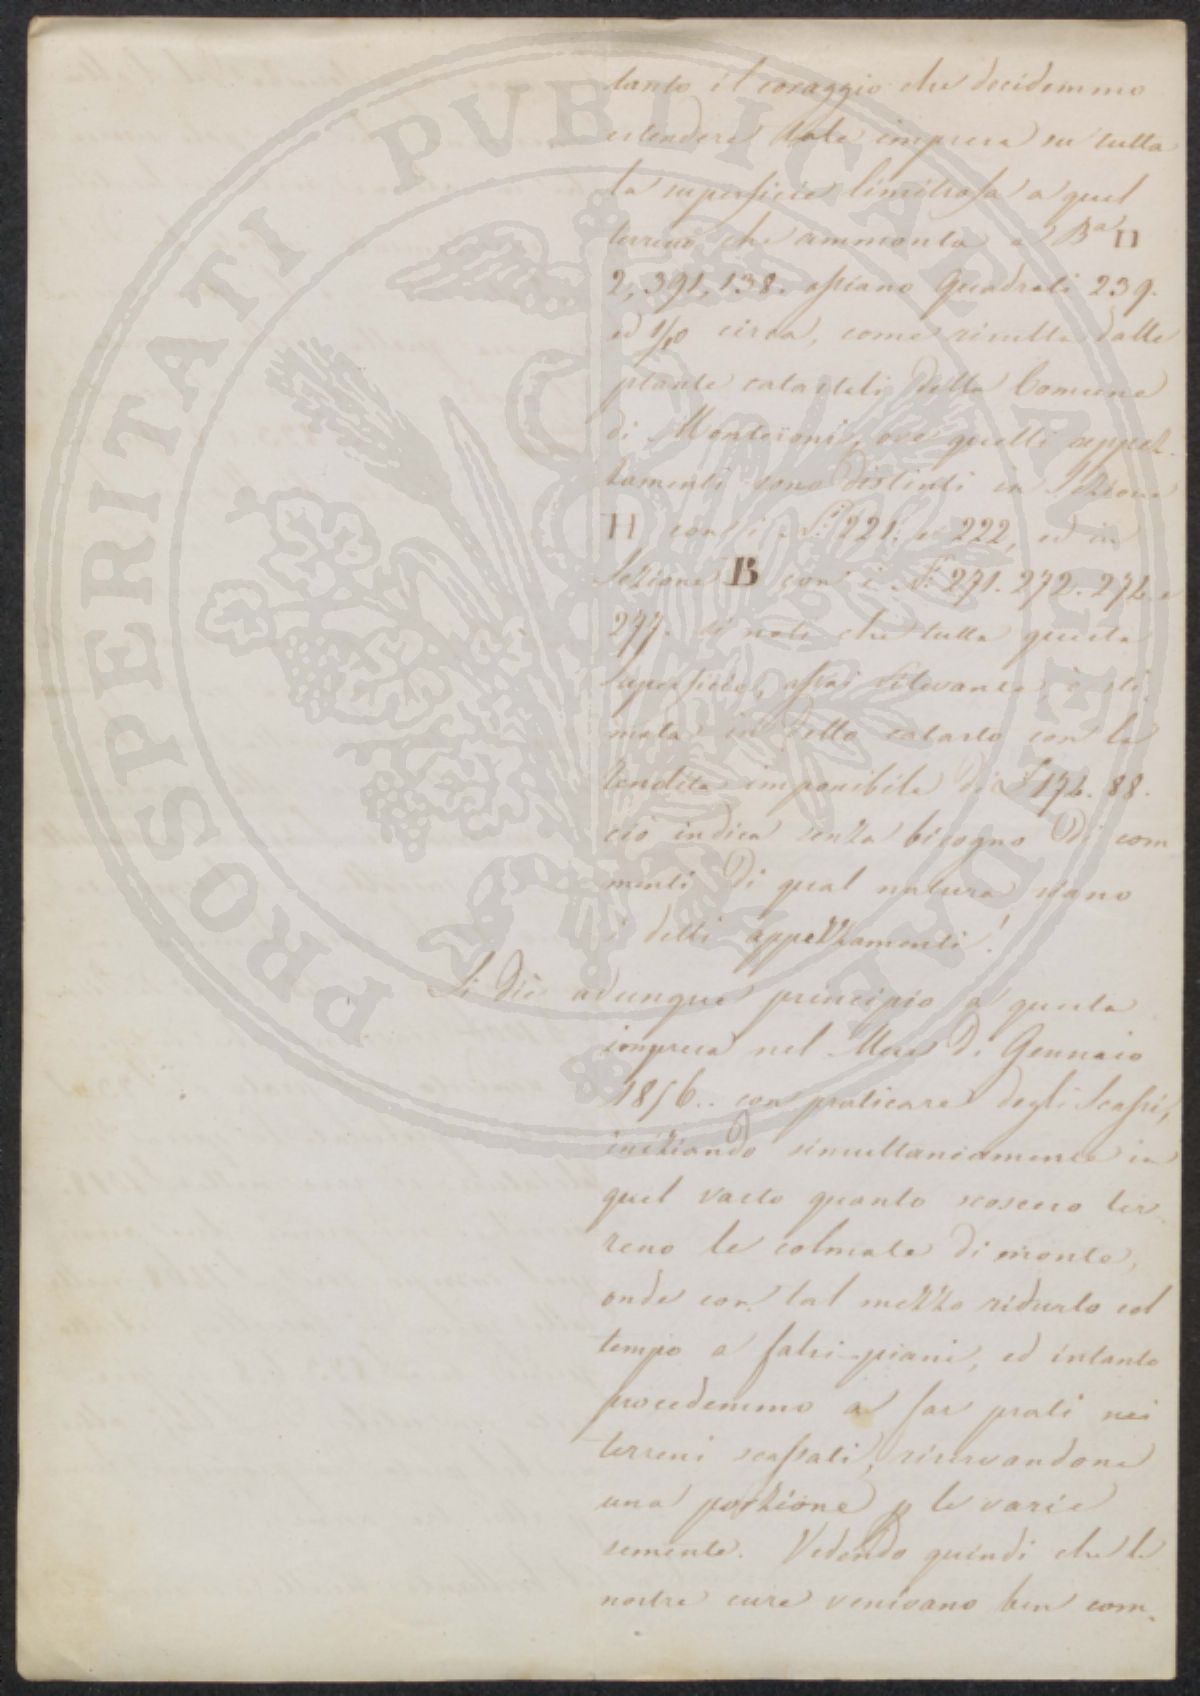 tanto il coraggio che decidemmo
estendere tale impresa su tutta
la superficie limitrofa a quel
terreno che ammonta a Bª □
2,391,138. ossiano Quadrati 239.
ed 1/10 circa, come risulta dalle
piante catastali della Comune
di Monteioni, ove quelli appez-
zamenti sono distinti in Sezione
H con i N.i 221. e 222, ed in
Sezione B con i N.i 271. 272. 274. e
277. si noti che tutta questa
superficie, assai rilevante è sti
mata in detto catasto con la
rendita imponibile di £ 174. 88.
ciò indica senza bisogno di com
menti di qual natura siano
i detti appezzamenti!
Si diè adunque principio a questa
impresa nel Mese di Gennaio
1856.. con praticare degli scassi,
iniziando simultaneamente in
quel vasto quanto scosceso ter
reno le colmate di monte,
onde con tal mezzo ridurlo col
tempo a falsi-piani, ed intanto
procedemmo a far prati nei
terreni scassati, riservandone
una porzione p le varie
semente. Vedendo quindi che le
nostre cure venivano ben com-
PROSPERITATI PUBLICAE AUGENDAE